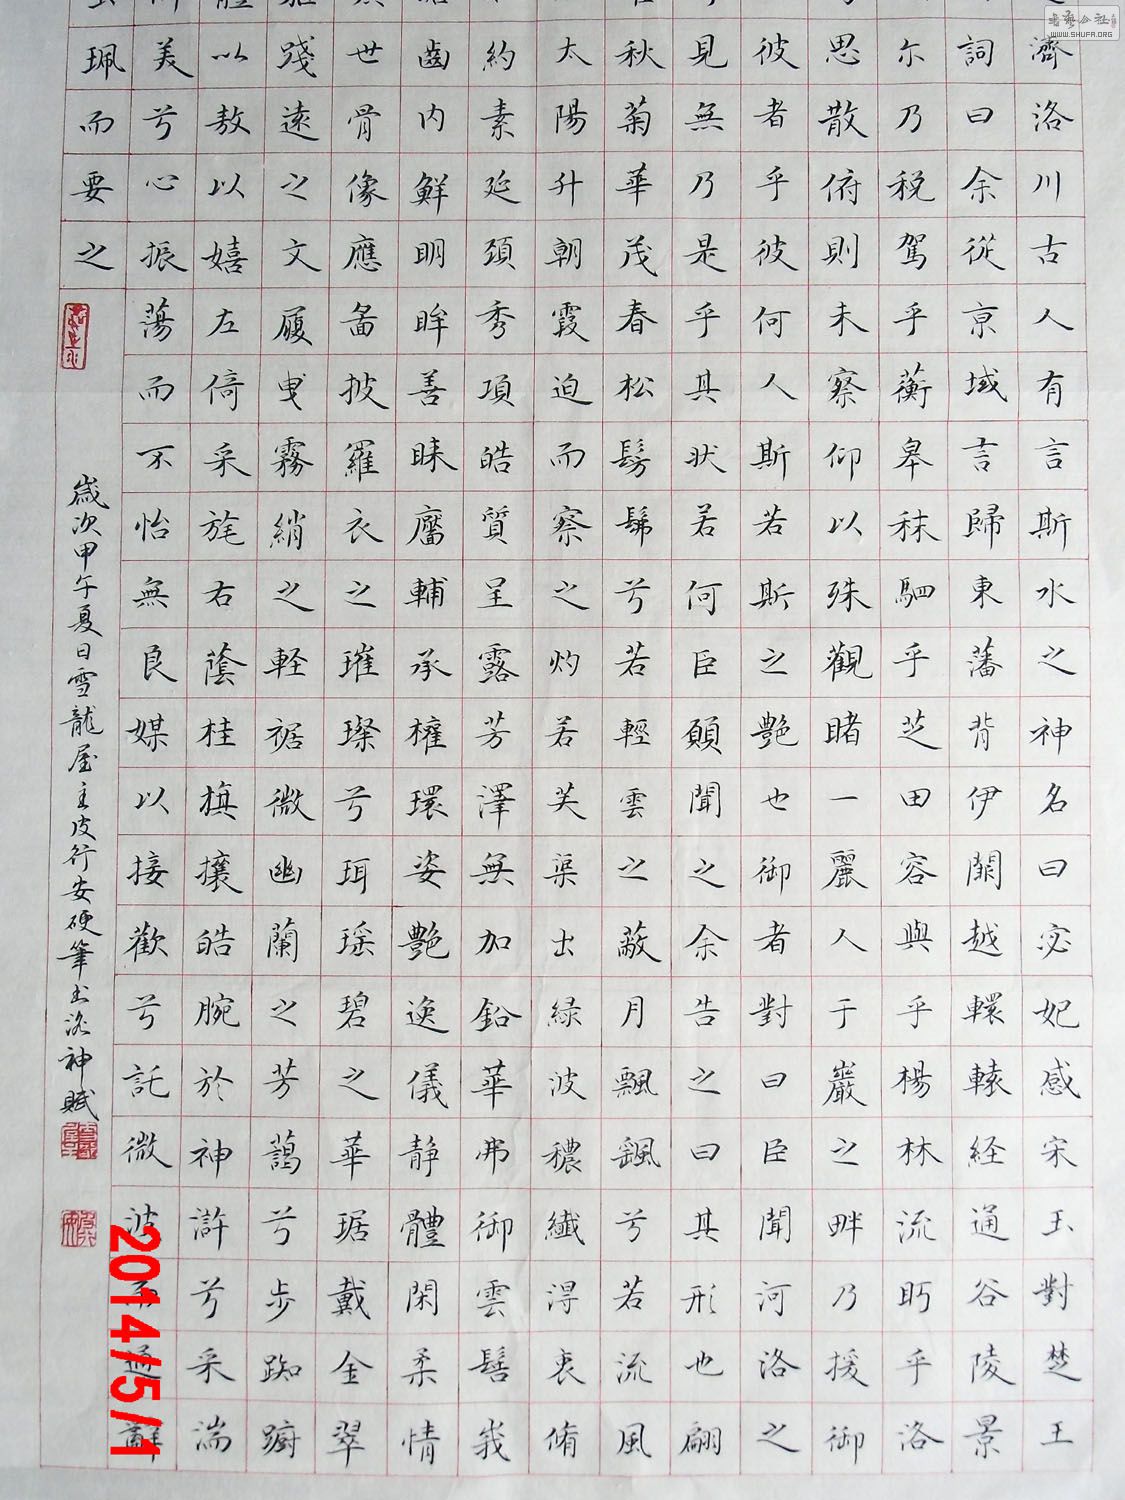 濟洛川古人有言斯水之神名曰宓妃感宋玉對楚王
詞曰余從京域言歸東藩背伊闕越轘轅経通谷陵景
尓乃税駕乎蘅皋秣駟乎芝田容與乎楊林流眄乎洛
思散俯則未察仰以殊觀睹一麗人于巖之畔乃援御
彼者乎彼何人斯若斯之艶也御者對曰臣聞河洛之
見無乃是乎其狀若何臣願聞之余告之曰其形也翩
秋菊華茂春松髣髴兮若輕雲之蔽月飄颻兮若流風
太陽升朝霞迫而察之灼若芙渠出緑波穠纖淂衷脩
約素延頸秀項皓質呈露芳澤無加鉛華弗御雲髻峩
齒内鮮明眸善睞靨輔承權環姿艶逸儀静體閑柔情
世骨像應啚披羅衣之璀璨兮珥瑶碧之華琚戴金翠
踐遠之文履曳霧綃之軽裾微幽蘭之芳藹兮步踟躕
以敖以嬉左倚采旄右蔭桂旗攘皓腕於神滸兮采湍
美兮心振蕩而不怡無良媒以接歡兮託微波而通辭
珮而要之
歲次甲午夏日雪龍屋主皮行安硬筆書洛神賦
2014/5/1
WWW.SHUFA.ORG